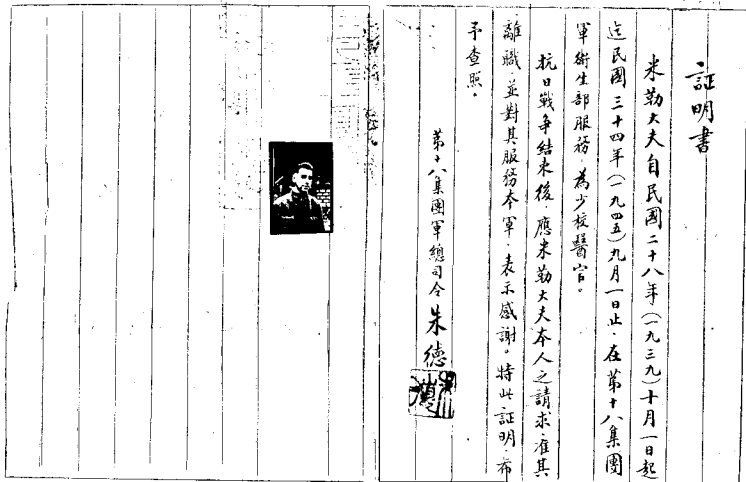 証明書
米勒大夫自民國二十八年(一九三九)十月一日起
迄民國三十四年(一九四五)九月一日止、在第十八集團
軍衛生部服務、為少校醫官。
抗日戰争結束後、應米勒大夫本人之請求、准其
離職、並對其服務本軍、表示感謝。特此証明、布
予查照。
第十八集團軍總司令朱德